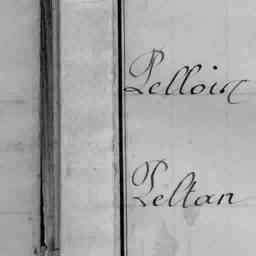 Pelloin
Peltan